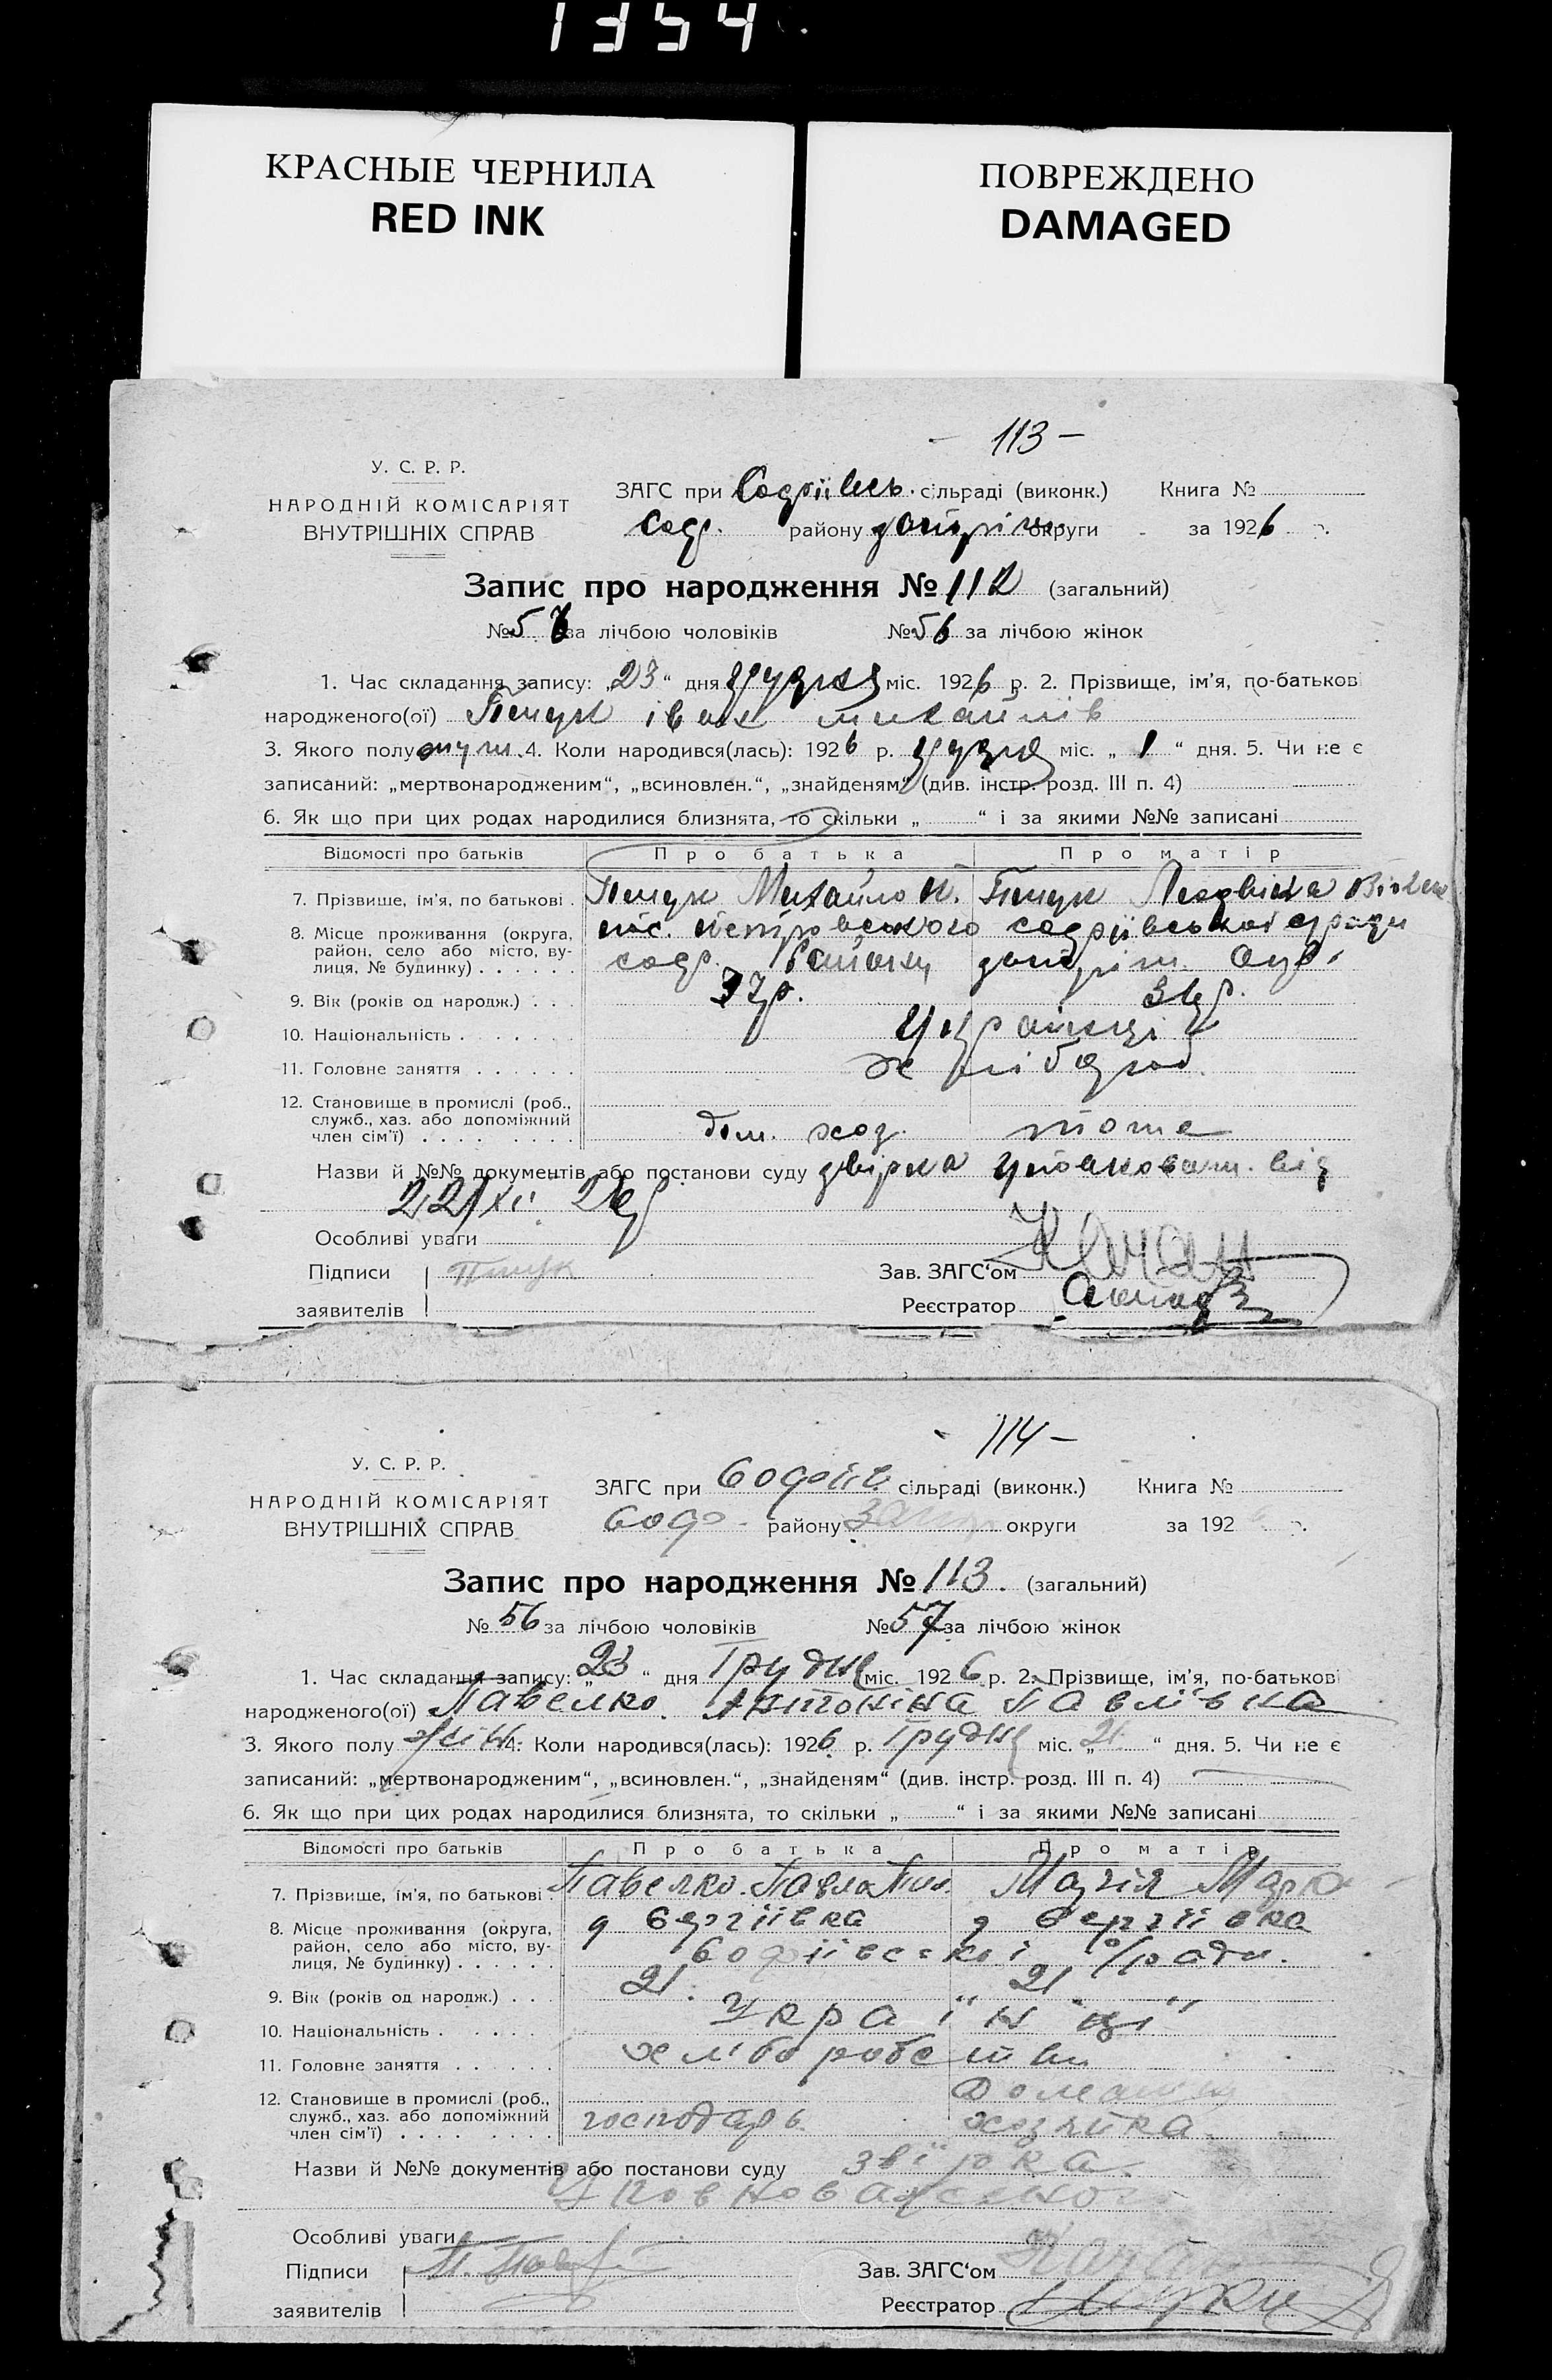 1354
КРАСНЫЕ ЧЕРНИЛА
RED INK
ПОВРЕЖДЕНО
DAMAGED
- 113 -
У. С. Р. Р.
НАРОДНІЙ КОМІСАРІЯТ
ВНУТРІШНІХ СПРАВ
ЗАГС при сільраді (виконк.) Книга №
Софг. району округи за 1926 р.
Запис про народження № 112 (загальний)
№ 5 за лічбою чоловіків № 56 за лічбою жінок
1. Час складання запису: „23“ дня Грудня міс. 1926 р. 2. Прізвище, ім’я, по-батькові
народженого(ої) іван михайлів
3. Якого полу муж. 4. Коли народився(лась): 1926 р. грудня міс. „1“ дня. 5. Чи не є
записаний: „мертвонародженим“, „всиновлен.“, „знайденям“ (див. інстр. розд. III п. 4)
6. Як що при цих родах народилися близнята, то скільки „ “ і за якими №№ записані
Відомості про батьків Про батька Про матір
7. Прізвище, ім’я, по батькові . Михайло
8. Місце проживання (округа, район, село або місто, вулиця, № будинку) . . . . . . пос. петровського
району
9. Вік (років од народж.) . . . 37р.
10. Національність . . . . . . . Українці
11. Головне заняття . . . . . . хлібороб.
12. Становище в промислі (роб., служб., хаз. або допоміжний член сім’ї) . . . . . . . . дом. хоз. тоже
Назви й №№ документів або постанови суду звірка уповноваж. від
Особливі уваги
Підписи
заявителів
Зав. ЗАГС‘ом Качан
Реєстратор
114 -
У. С. Р. Р.
НАРОДНІЙ КОМІСАРІЯТ
ВНУТРІШНІХ СПРАВ
ЗАГС при сільраді (виконк.) Книга №
району Запор округи за 192 р.
Запис про народження № 113. (загальний)
№ 56 за лічбою чоловіків № 57 за лічбою жінок
1. Час складання запису: „23“ дня Грудня міс. 1926 р. 2. Прізвище, ім’я, по-батькові
народженого(ої) Павелко Антоніна Павлівна
3. Якого полу жін. 4. Коли народився(лась): 1926 р. Грудня міс. „21“ дня. 5. Чи не є
записаний: „мертвонародженим“, „всиновлен.“, „знайденям“ (див. інстр. розд. III п. 4)
6. Як що при цих родах народилися близнята, то скільки „ “ і за якими №№ записані
Відомості про батьків Про батька Про матір
7. Прізвище, ім’я, по батькові Павелко Павло
8. Місце проживання (округа, район, село або місто, вулиця, № будинку) . . . . . . Сергіївка Сергіївка
с/ради.
9. Вік (років од народж.) . . . 21. 21
10. Національність . . . . . . Українці
11. Головне заняття . . . . . . хліборобство
12. Становище в промислі (роб., служб., хаз. або допоміжний член сім’ї) . . . . . . . . господарь домашня хозяйка
Назви й №№ документів або постанови суду звірка
Уповноваженого
Особливі уваги
Підписи
заявителів
Зав. ЗАГС‘ом Качан
Реєстратор